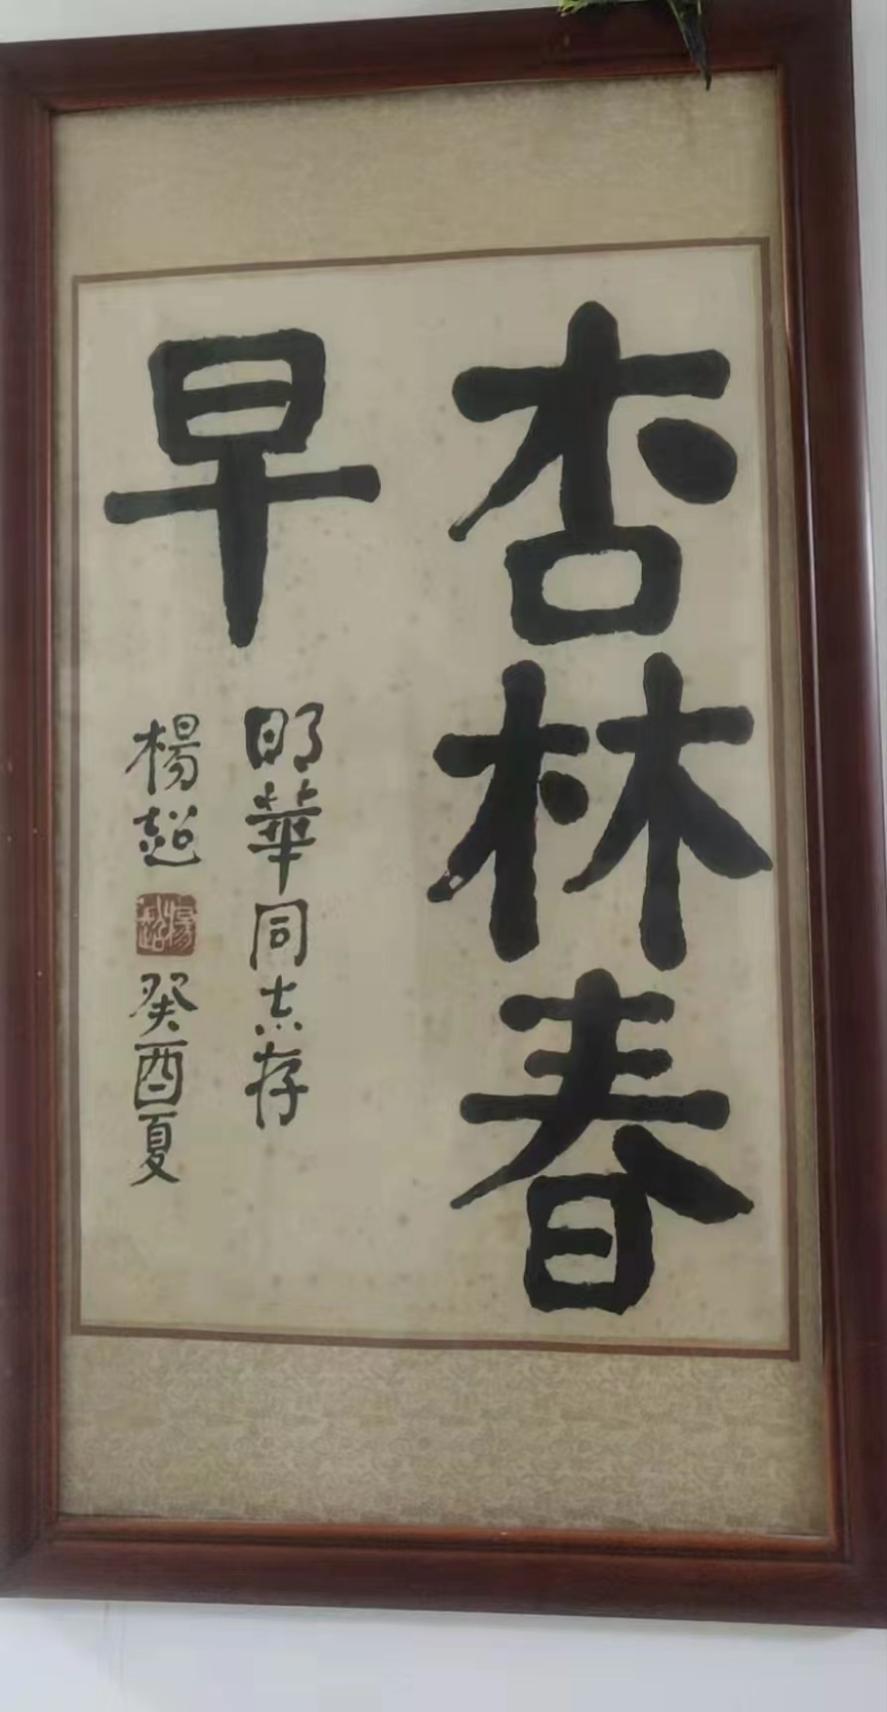 杏林春
早
明華同志存
楊超
楊超
癸酉夏